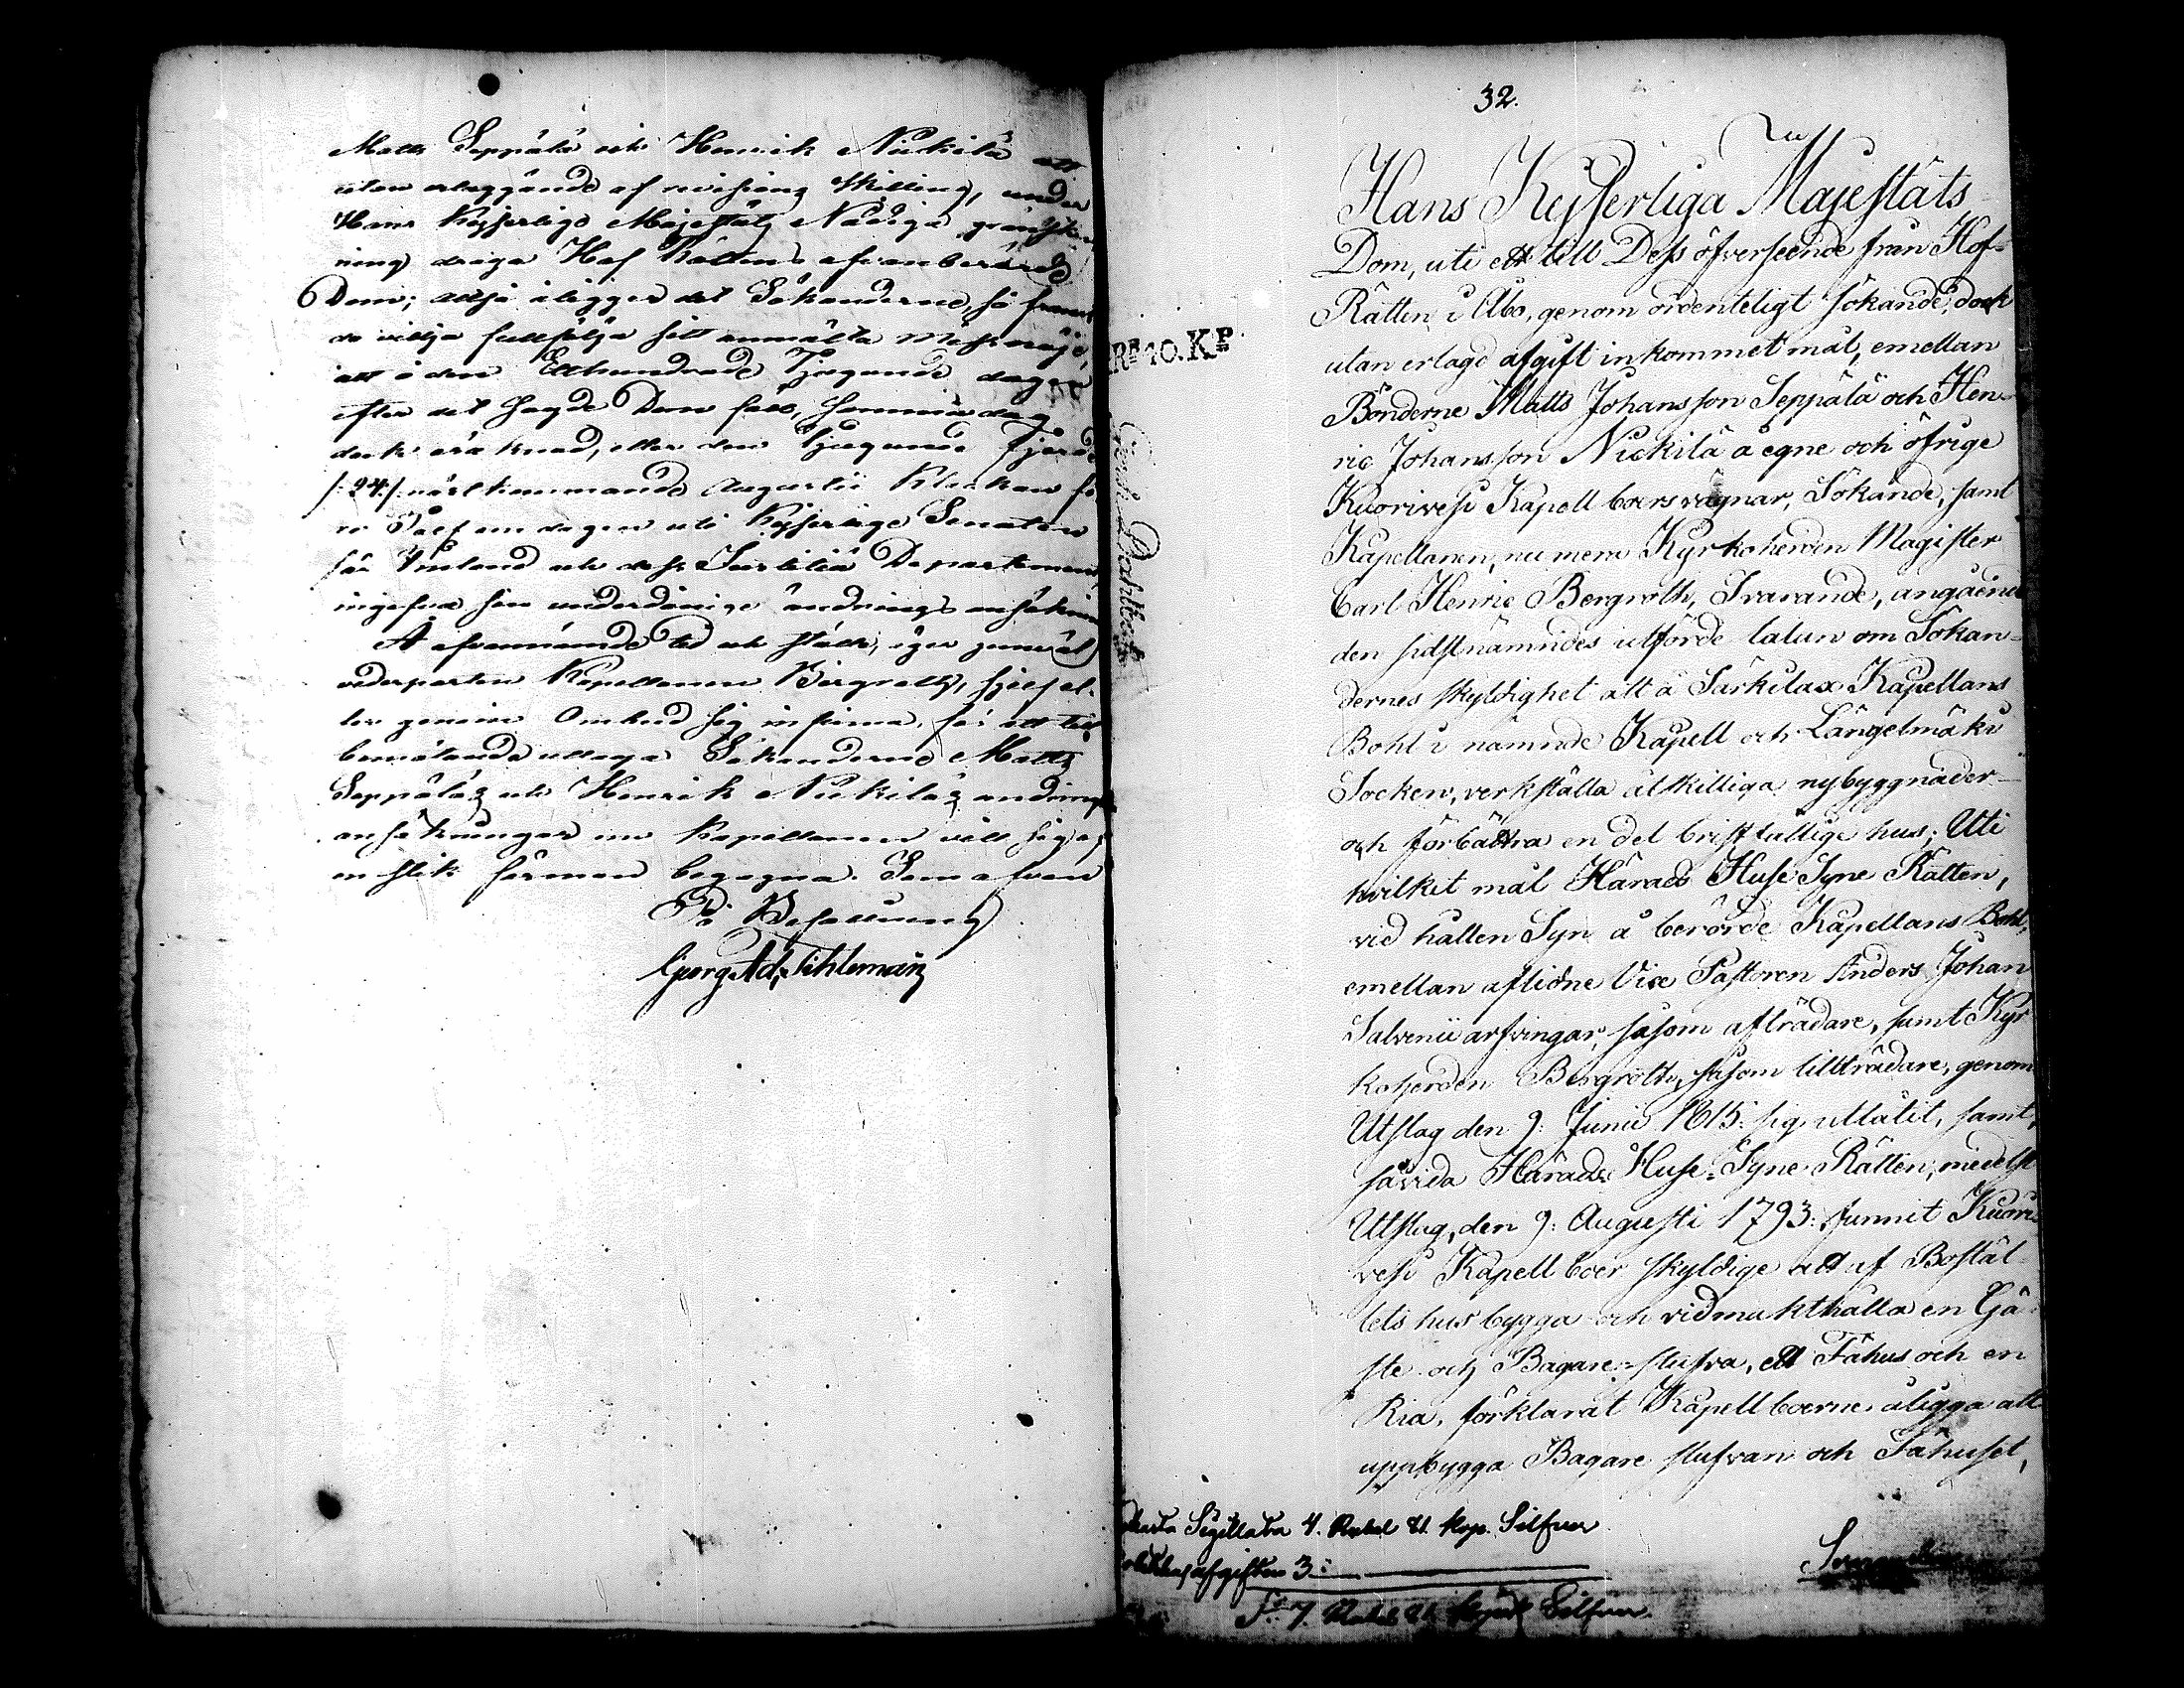 Matts Seppälä och Henrik Nickilä att
utan erläggande af revisions skilling, under
Hans Kejserliga Majestäts Nådiga gransk-
ning draga Hof Rättens ofvanberörde
Dom; altså ålägger det Sökanderne, så framt
de vilja fullfölja sitt anmälta Missnöje,
att å den Etthundrade Tjugunde dagen
efter det sagde Dom föll, samma dag
dock oräknad, eller den Tjugunde fjerde
/:24:/ nästkommande Augusti Klockan fö-
re Tolf om dagen uti Kejserlige Senaten
för Finland och dess Justitiæ Departement
ingifva sin underdåniga ändrings ansökning
Å ofvannämnde tid och ställe, äger jemväl
vederparten Kapellanen Bergroth, sjelf el-
ler genom Ombud sig infinna, för att till
bemötande uttaga Sökanderne Matts
Seppäläs och Henrik Nickiläs ändrings
ansökningar om Kapellanen vill sig af
en slik förmon begagna. Som ofvan
På Befallning
Georg Ad. Tihleman
32.
Till
Hans Kejserliga Majestäts
Dom, uti ett till Dess öfverseende från Hof-
Rätten i Åbo, genom ordenteligt sökande, dock
utan erlagd afgift inkommet mål, emellan
Bönderne Matts Johansson Seppälä och Hen-
ric Johansson Nickilä å egne och öfrige
Kuorivesi Kapellboers vägnar, Sökande, samt
Kapellanen, numera Kyrkoherden Magister
Carl Henric Bergroth, Svarande, angående
den sidstnämndes utförde talan om Sökan-
dernes skyldighet att å Särkilax Kapellans
Bohl i nämnde Kapell och Längelmäki
Socken, verkställa åtskilliga nybyggnader
och förbättra en del bristfällige hus; Uti
hvilket mål Härads Huse Syne Rätten,
vid hållen Syn å berörde Kapellans Bohl,
emellan aflidne Vice Pastoren Anders Johan
Salvenii arfvingar, såsom afträdare, samt Kyr
koherden Bergroth, såsom tillträdare, genom
Utslag den 9: Junii 1815: sig utlåtit, samt,
såvida Härads Huse-Syne Rätten, medelst
Utslag, den 9: Augusti 1793: funnit Kuori-
vesi Kapellboer skyldige att af Boställ-
lets hus bygga och vidmakthålla en Gä-
ste och Bagare-stufva, ett Fähus och en
Ria, förklarat Kapellboerne åligga att
uppbygga Bagare stufvan och Fähuset,
RBL 40. KP.
Charta Sigillata 4. Rubel 81. Kop. Silfver
afgiften 3:
Sa 7. Rubel 81. Kopek Silfver.